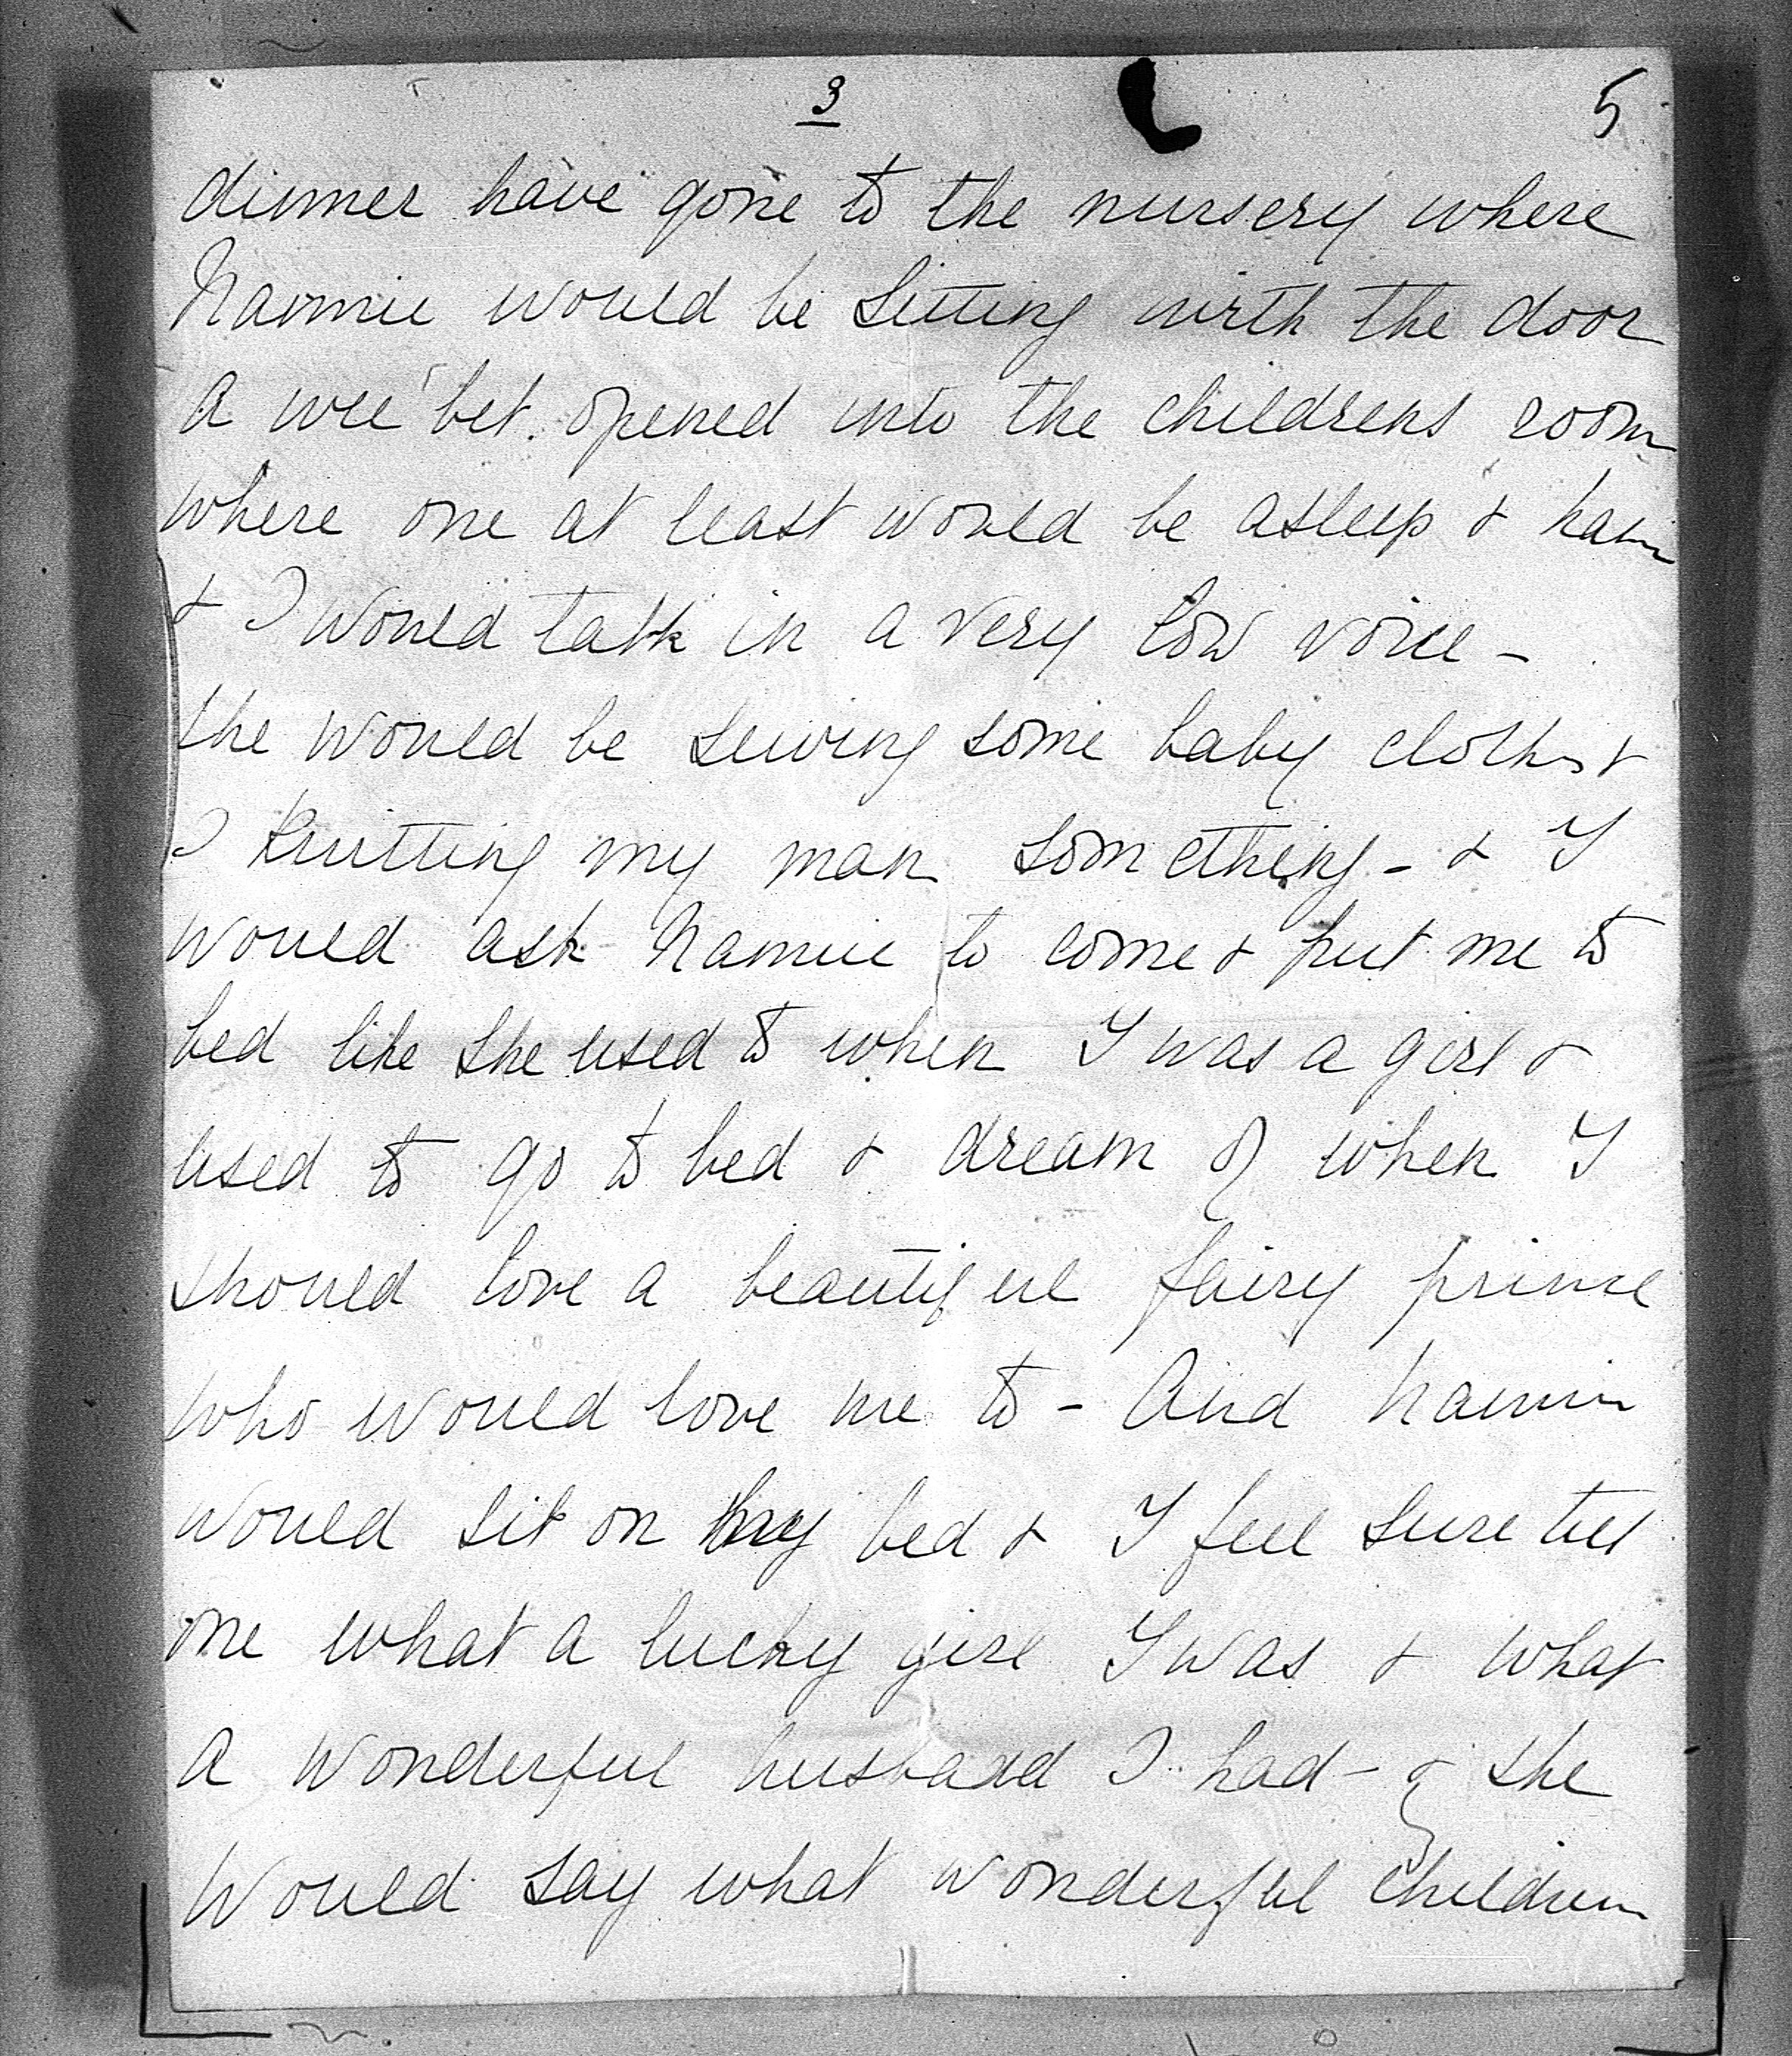 3
5
dinner have gone to the nursery where
Nannie would be sitting with the door
a wee bit opened into the childrens room
where one at least would be asleep & Nann
& I would talk in a very low voice -
She would be sewing some baby clothes &
I knitting my man something - & I
would ask Nannie to come & put me to
bed like she used to when I was a girl &
used to go to bed & dream of when I
should love a beautiful fairy prince
who would love me to - And Nannie
would sit on my bed & I feel sure tell
me what a lucky girl I was & what
a wonderful husband I had - & she
would say what wonderful children